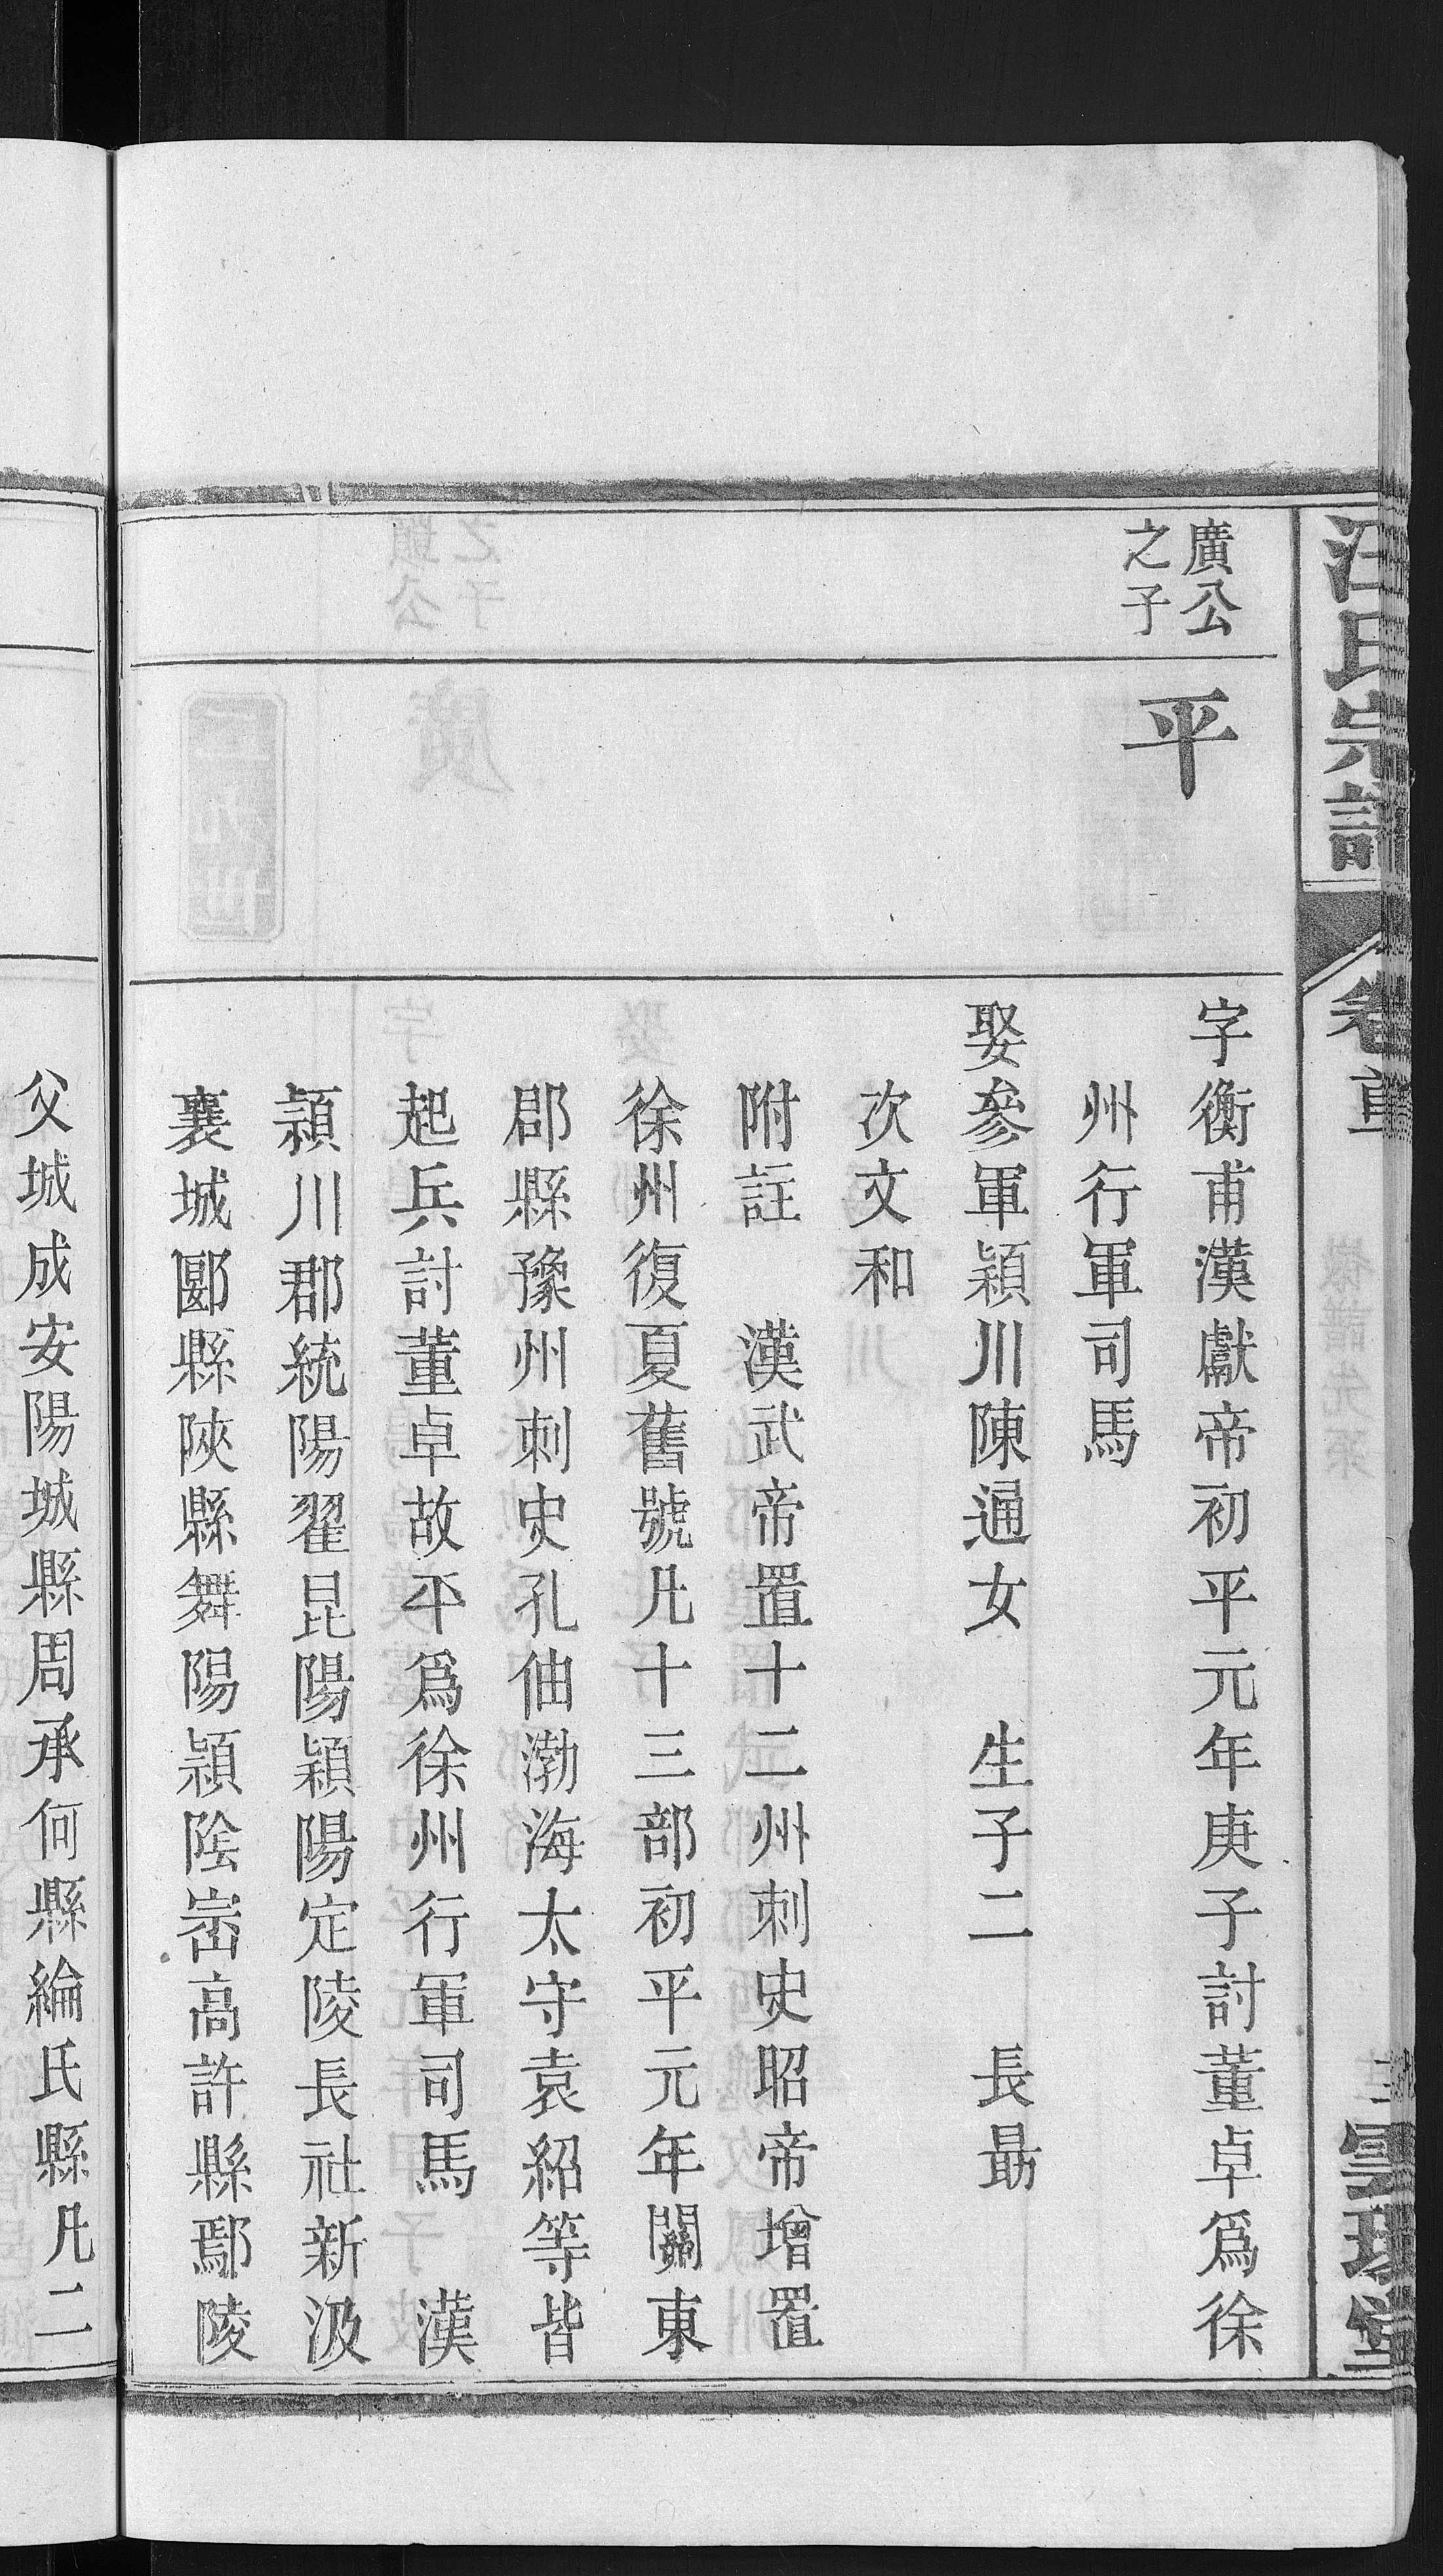 汪氏宗譜
卷首
廣公
之子
平
字衡甫漢獻帝初平元年庚子討董卓爲徐
州行軍司馬
娶參軍潁川陳通女 生子二 長勗
次文和
附註 漢武帝置十二州刺史昭帝增置
徐州復夏舊號凡十三部初平元年關東
郡縣豫州刺史孔伷渤海太守袁紹等皆
起兵討董卓故平爲徐州行軍司馬 漢
潁川郡統陽翟昆陽潁陽定陵長社新汲
襄城郾縣陝縣舞陽潁陰崈高許縣鄢陵
父城成安陽城縣周承何縣綸氏縣凡二